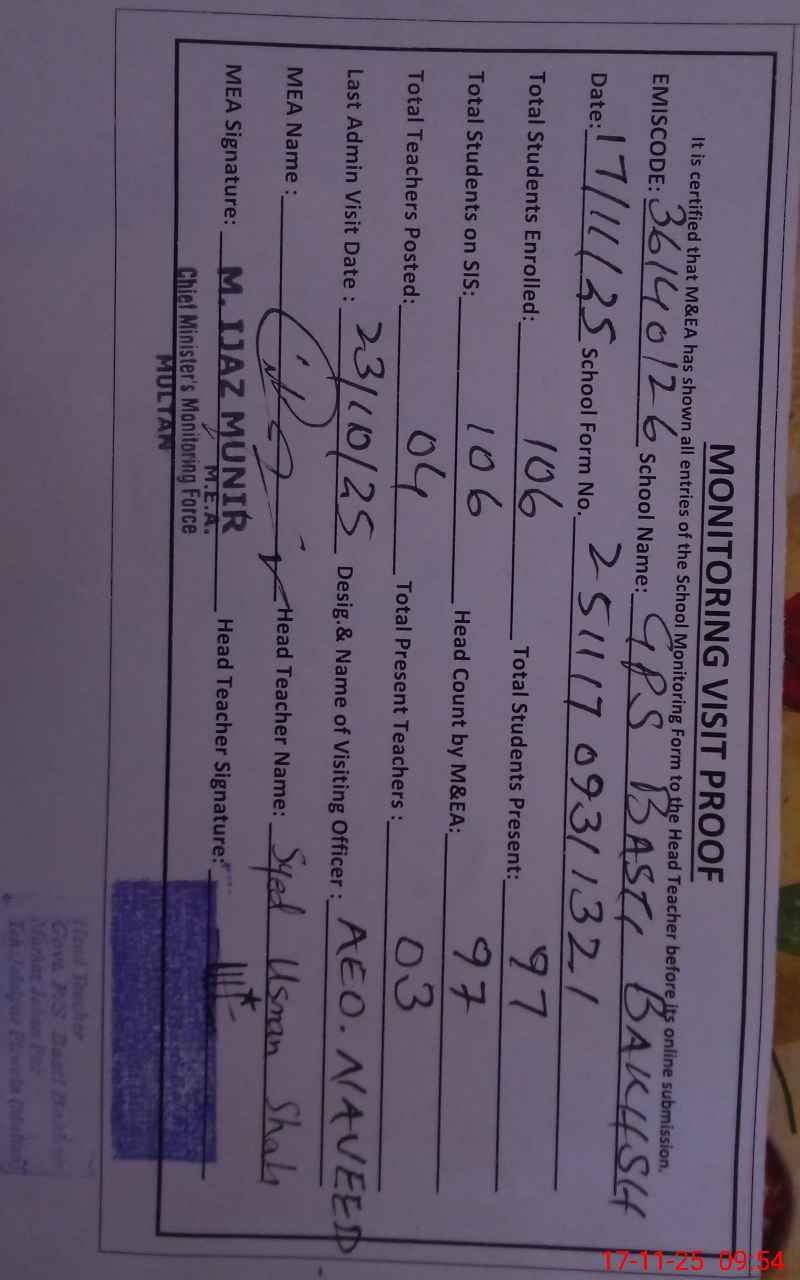 MONITORING VISIT PROOF
It is certified that M&EA has shown all entries of the School Monitoring Form to the Head Teacher before its online submission.
EMISCODE: 36140126 School Name: GPS BASTI BAKHSH
Date: 17/11/25 School Form No. 251117 0931 1321
Total Students Enrolled: 106 Total Students Present: 97
Total Students on SIS: 106 Head Count by M&EA: 97
Total Teachers Posted: 04 Total Present Teachers : 03
Last Admin Visit Date : 23/10/25 Desig.& Name of Visiting Officer : AEO. NAVEED
MEA Name : Head Teacher Name: Syed Usman Shah
MEA Signature: M. IJAZ MUNIR Head Teacher Signature:
M.E.A.
Chief Minister's Monitoring Force
MULTAN
Head Teacher
Govt. P/S Basti
17-11-25 09:54